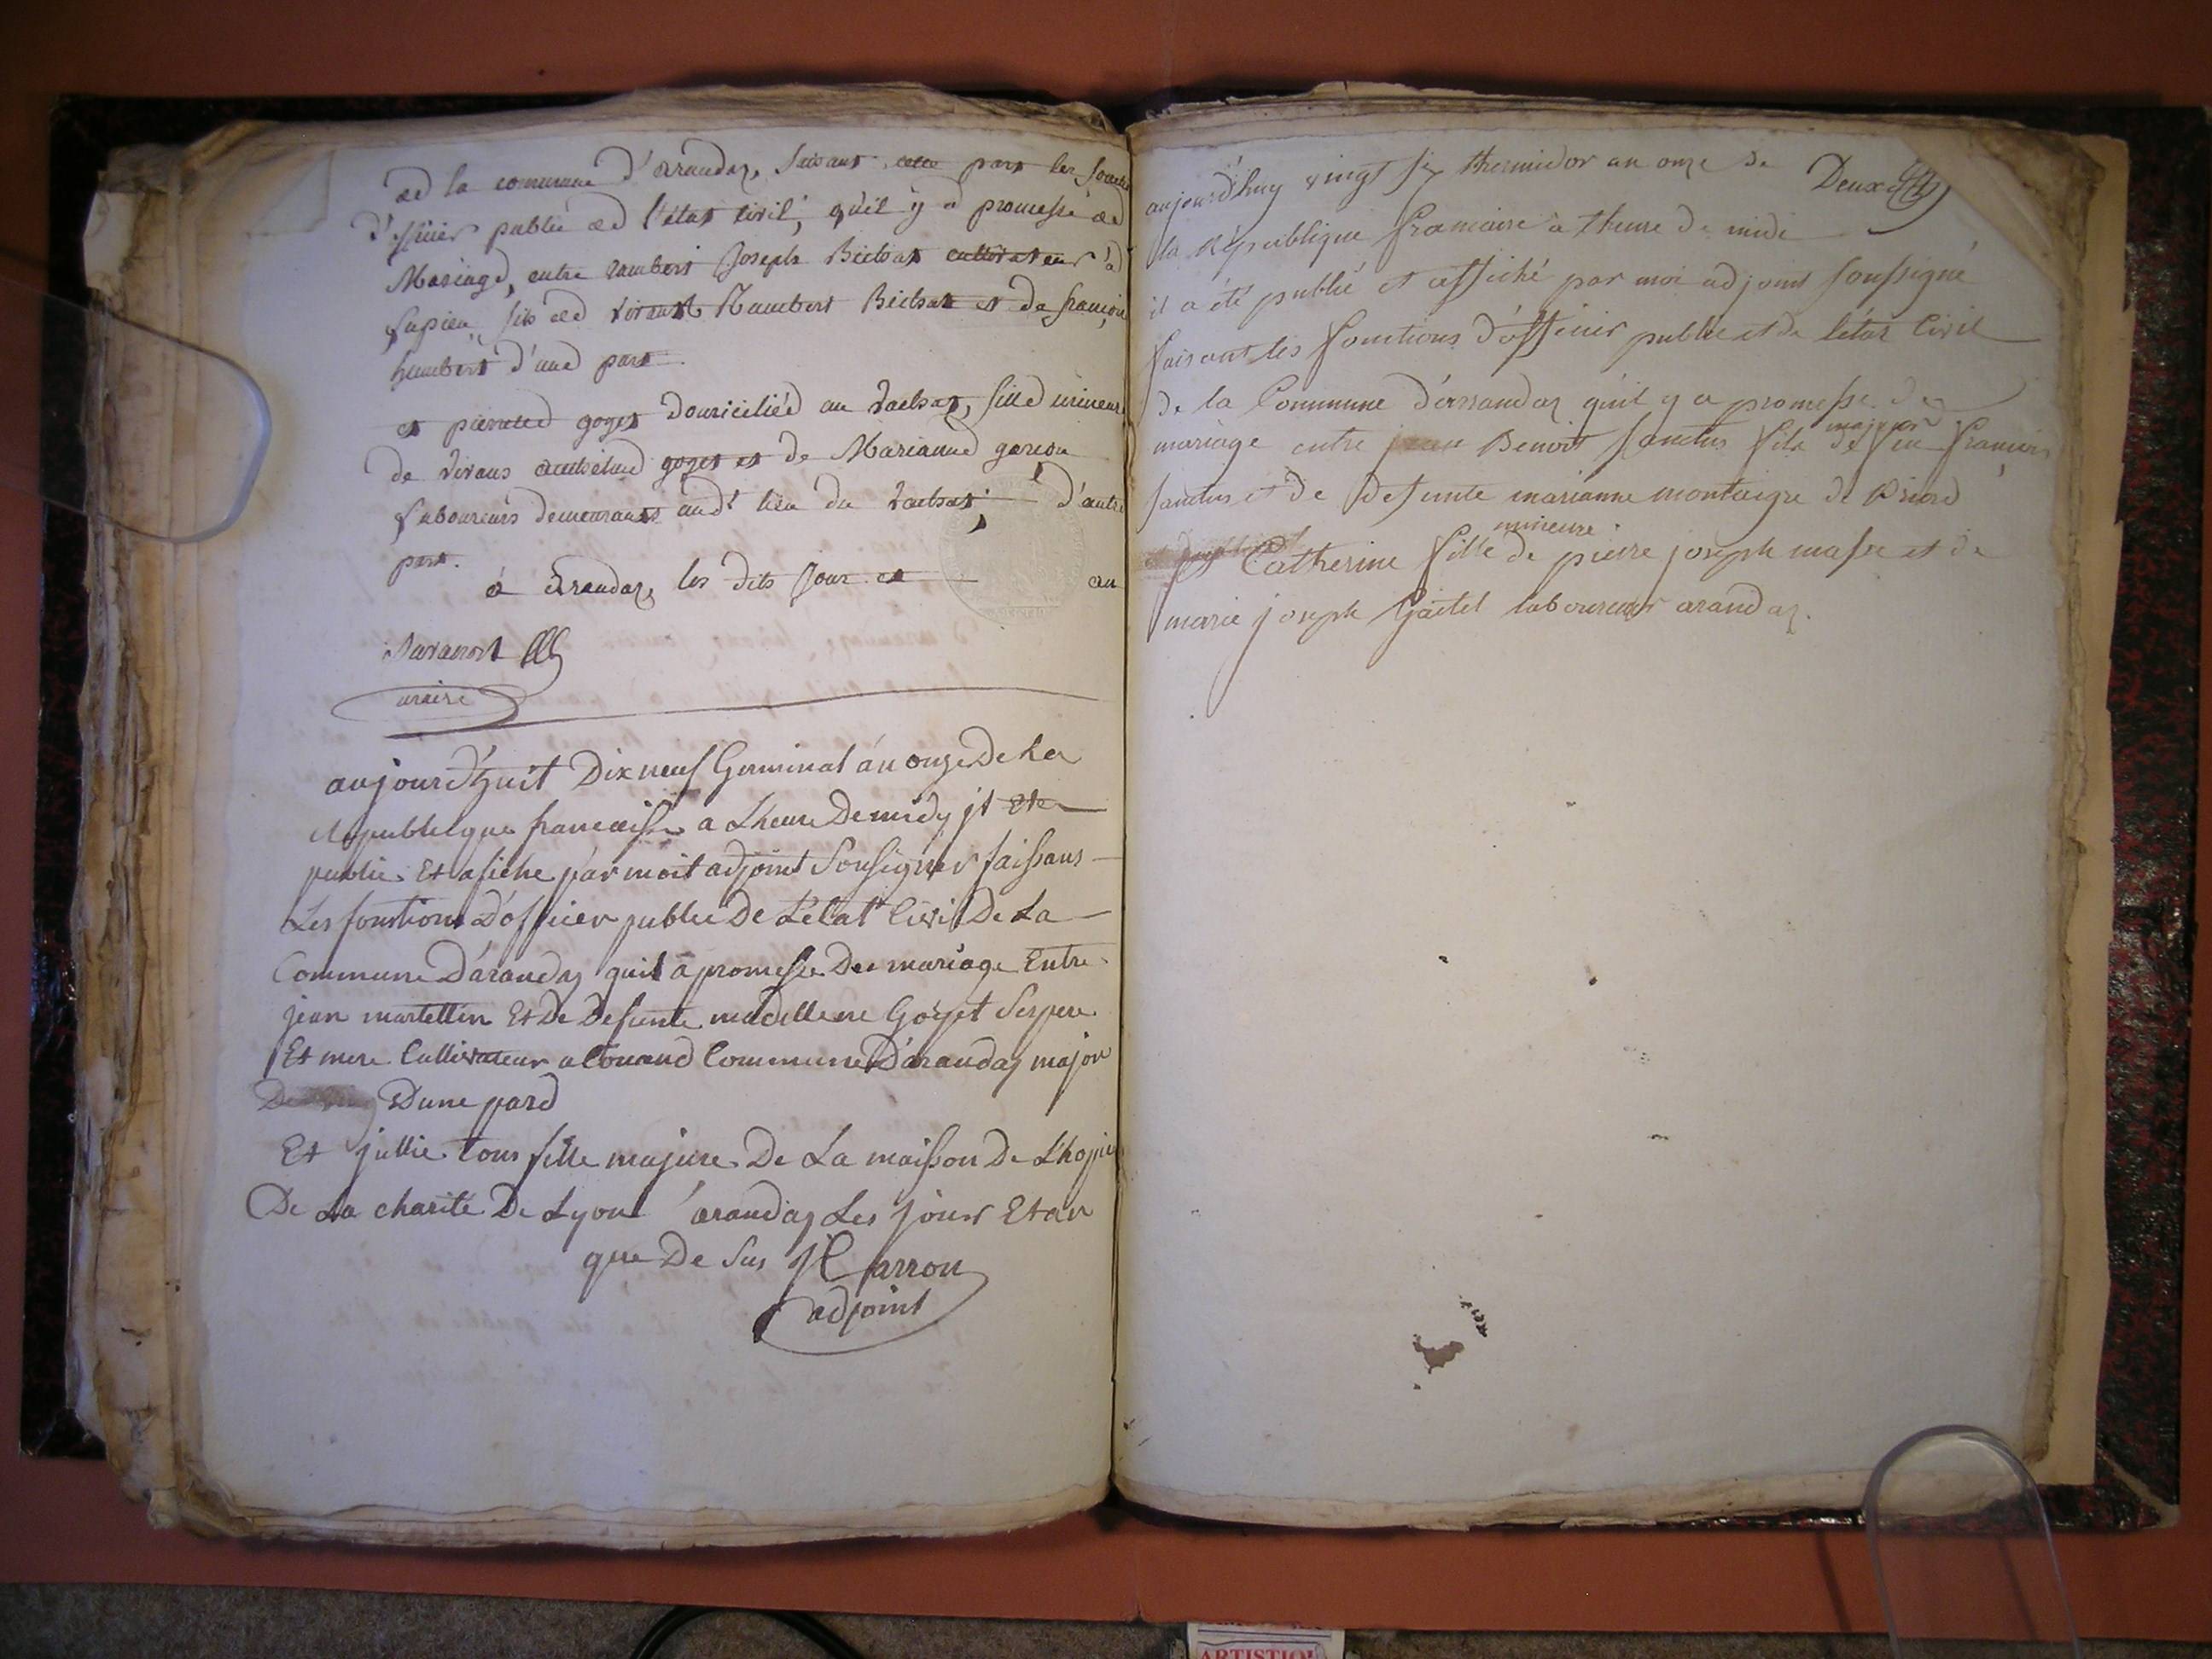 de la commune d'arandaz, faisant part les fonctions
d'officier public de l'état civil, qu'il y a promesse de
Mariage, entre rambert Joseph Bichat cultivateur à
fils de vivant Rambert Bichat et de françoise
humbert d'une part
et pierrete goget domiciliée au vachat, fille mineure
de vivans anthelme goget et de Marianne garron
laboureurs demeurants audt lieu du vachat; d'autre
part.
à arandaz, les dits jour et an
Savarin
maire
aujourd'huit Dix neuf Germinal án onze De La
Republique francaisse a Lheure De midy jl Ete
publie Et afiche par moit adjoint Sousigner faissans
Les fonstions D'officier public De L'état Civil De La
Commune D'arandas quil á promesse De mariage Entre
jean martellin Et De Defunte madellene Goyet Ses pere
Et mere Cultivateur a Commune D'arandas major
Dune pard
Et jullie fille majure De La maisson De Lhopi
De La charité De Lyon arandas Les jour Et an
que De Sus Carron
adjoint
Deux
aujourd'huy vingt six thermidor an onze de
la République francaise à l'heure de midi
il a été publié et affiché par moi adjoint soussigné
faisant les fonctions d'officier public et de létat civil
de la Commune d'arrandaz qu'il y a promesse de
major
mariage entre jean Benoit sanctus fils de feu francois
sanctus et de defunte marianne montaigre de
mineure
et Catherine fille de pierre joseph masse et de
marie joseph Goitel laboureur arandaz.
ARTISTIQU